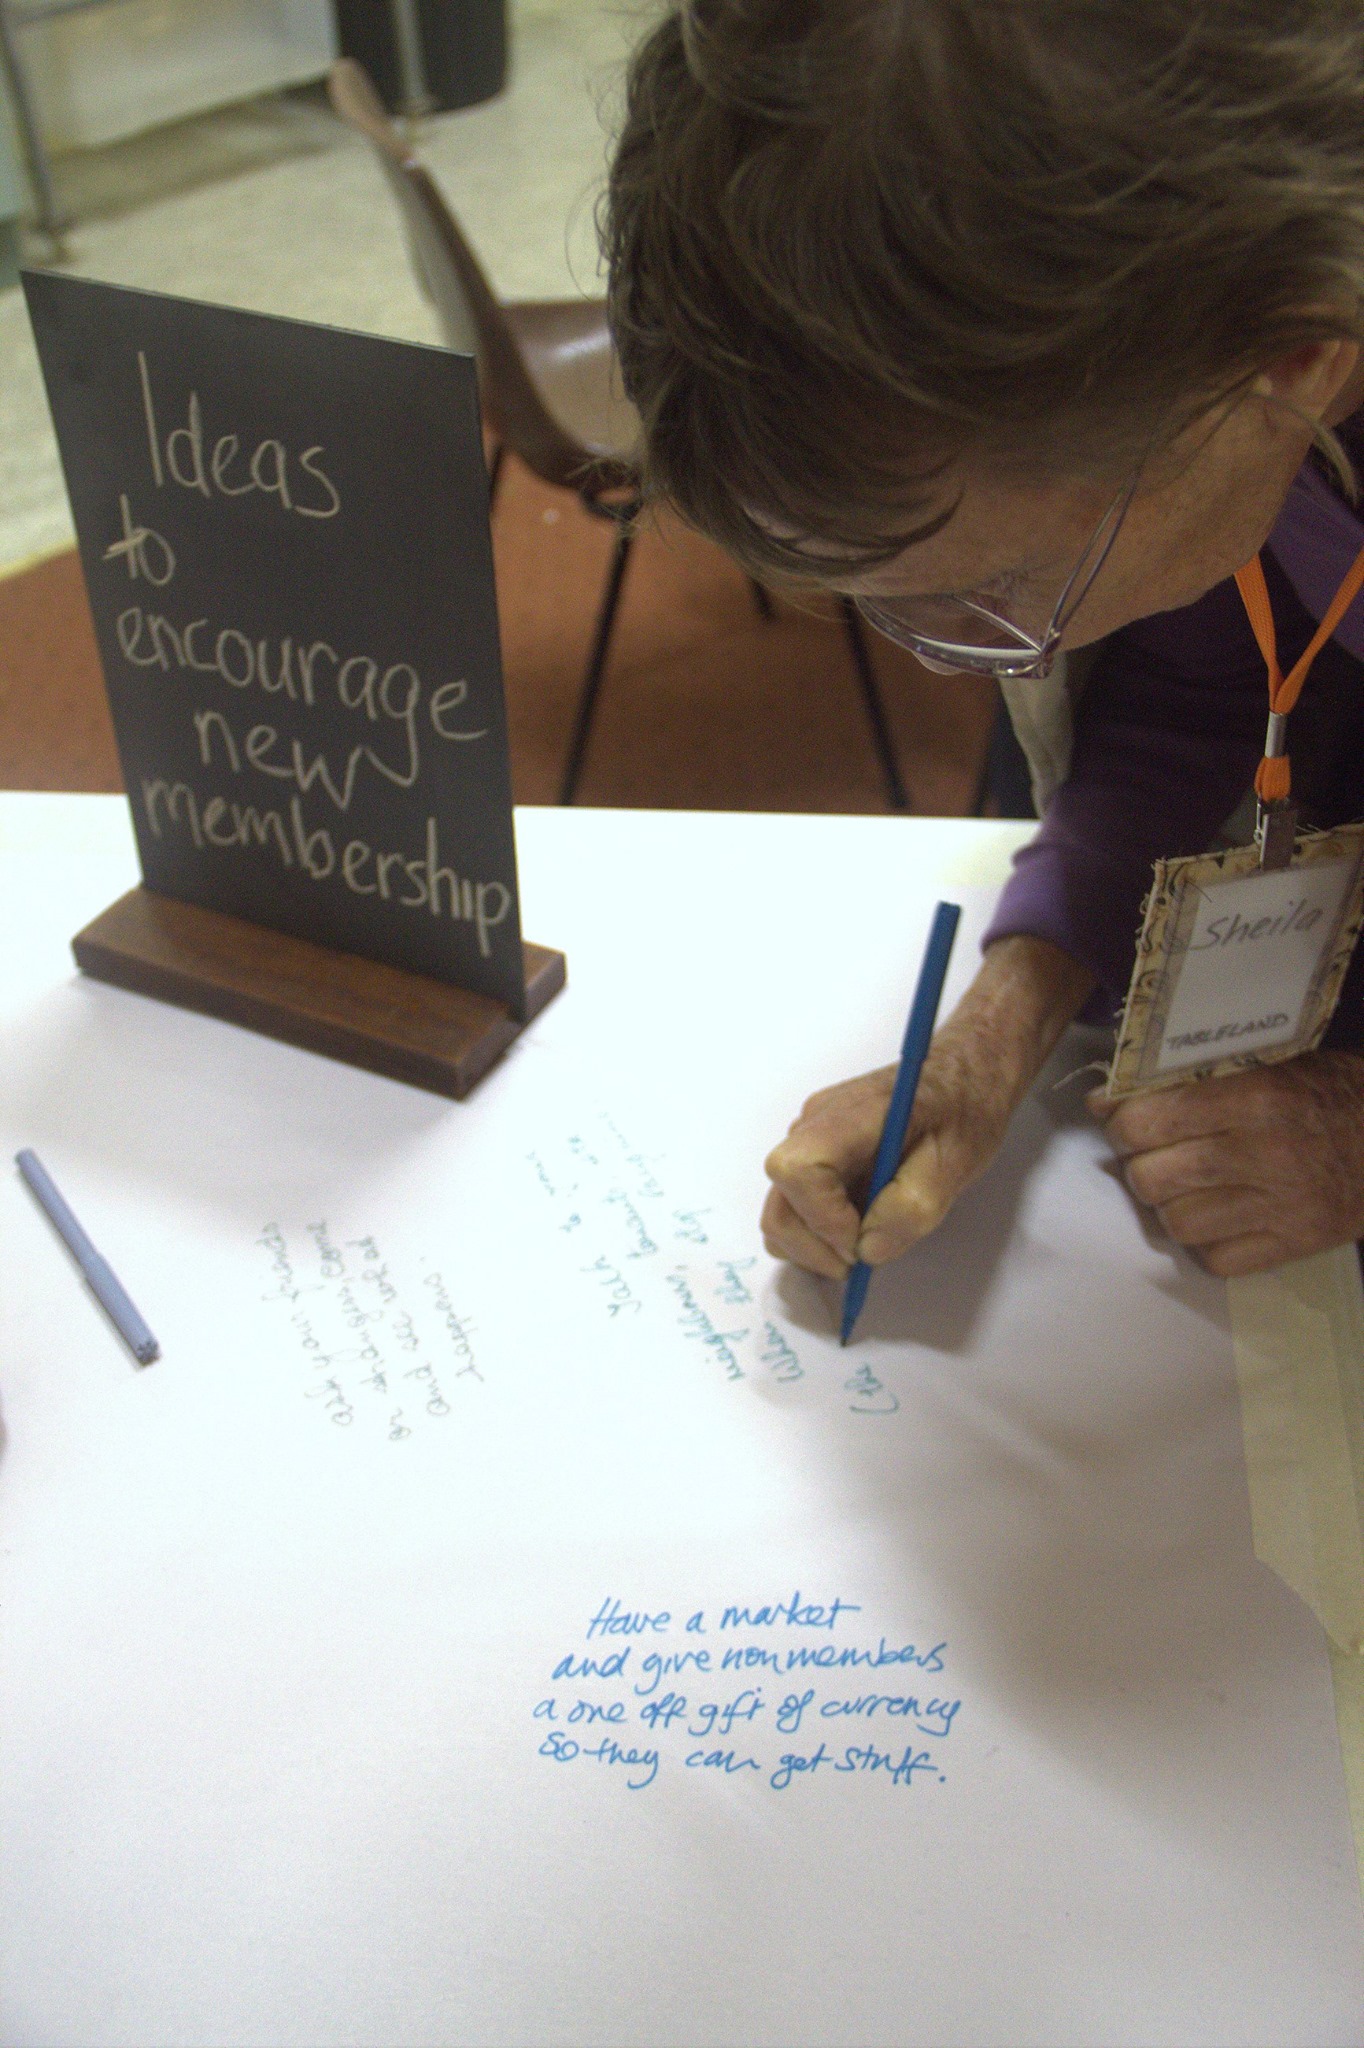 Ideas
to
encourage
new
membership
Sheila
TABLELAND
ask your friends
on changes, come
and see what
happens.
Talk to your
neighbours,
When they stop
(the
Have a market
and give nonmembers
a one off gift of currency
so they can get stuff.